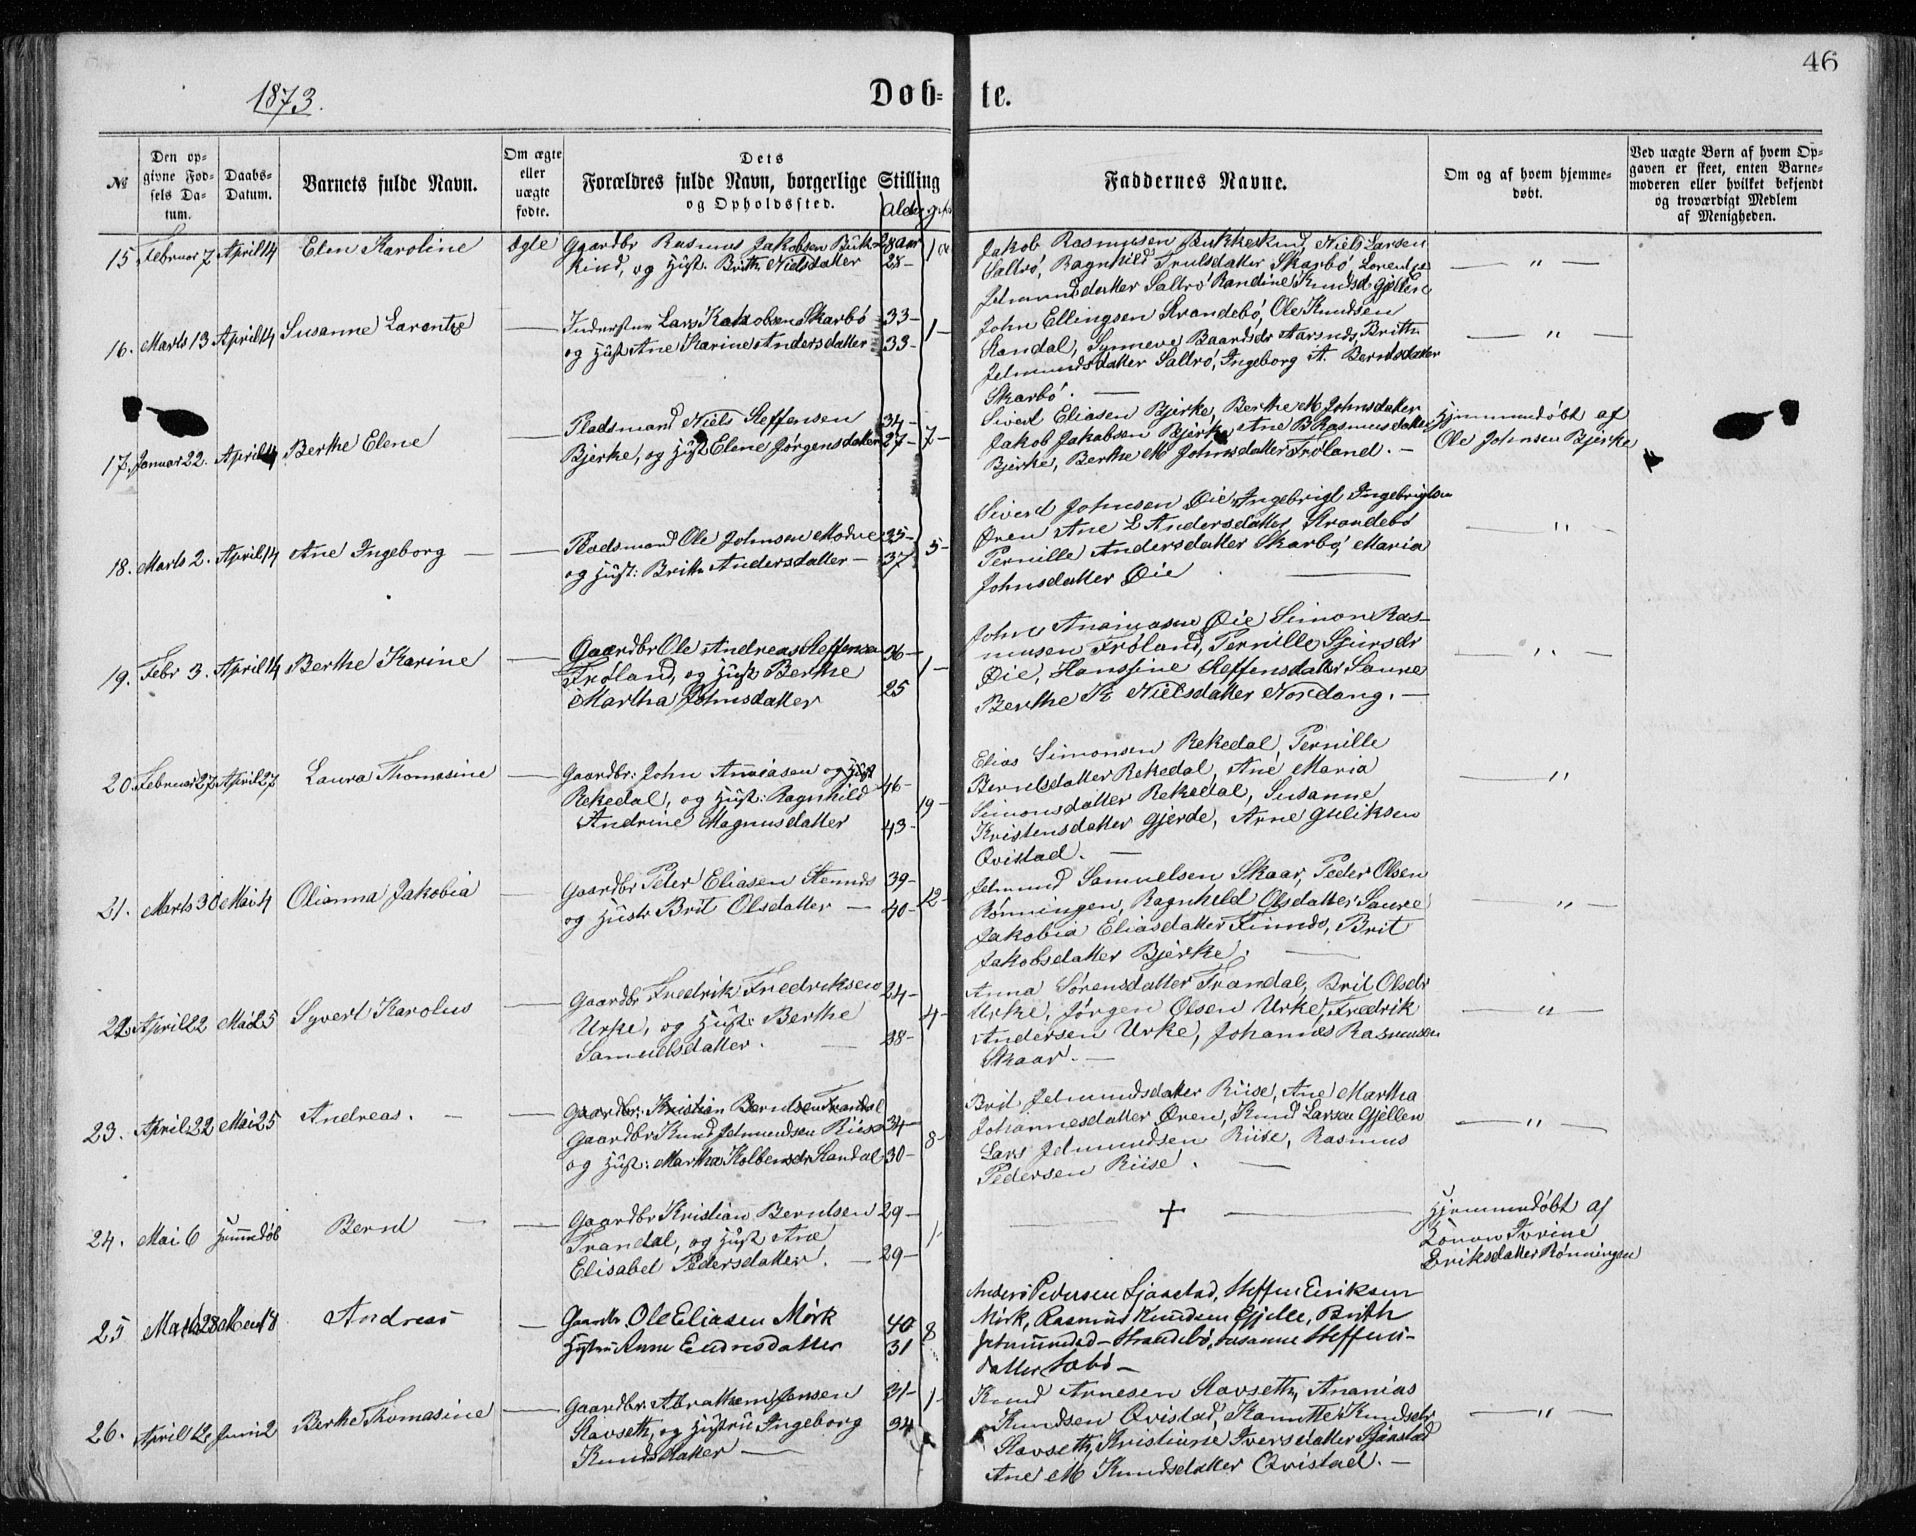 46
1873.
Døb- te.
№
Den op-
givne Fød-
sels Da-
tum.
Daabs-
Datum.
Barnets fulde Navn.
Om ægte
eller
uægte
fødte.
Dets
Forældres fulde Navn, borgerlige Stilling
og Opholdssted.
Alder
Faddernes Navne.
Om og af hvem hjemme-
døbt.
Ved uægte Børn af hvem Op-
gaven er skeet, enten Barne-
moderen eller hvilket bekjendt
og troværdigt Medlem
af Menigheden.
15 Februar 7 April 14 Elen Karoline ægte
Gaardbr Rasmus Jakobsen Buk- 28 aar
kind, og Hust. Brith Nielsdatter 28 -
Jakob Rasmussen Bukkeskind, Niels Larsen
Saltrö, Ragnhild Trulsdatter Skarbö Lorentse
Jetmundsdatter Saltrö Randine Knudsd Gjellen
— " —
16. Marts 13 April 14 Susanne Larentse —
Inderster Lars Jakobsen Skarbö 33 -
og Hust Ane Karine Andersdatter 33 - 1 -
John Ellingsen Strandebö, Ole Knudsen
Standal, Synneve Baardsdr Aarsnds, Brith
Jetmundsdatter Saltrö, Ingeborg A. Berntsdatter
Skarbö. —
— " —
17. Januar 22. April 14 Berthe Elene —
Pladsmand Niels Steffensen 34 -
Bjerke, og Hust Elene Jørgensdatter 27 - 7 -
Sivert Eliasen Bjerke, Berthe M Johnsdatter
Jakob Jakobsen Bjerke, Ane B Rasmusdatter
Bjerke, Berthe M Johnsdatter Frøland. -
Hjemmedøbt af
Ole Johnsen Bjerke
18. Marts 2. April 14 Ane Ingeborg —
Pladsmand Ole Johnsen Modve 35 -
og Hust: Brith Andersdatter - 37 - 5 -
Siverd Johnsen Øie, Ingebrigt Ingebrigtsen
Øren Ane E Andersdatter Strandebö
Pernille Andersdatter Skarbö, Maria
Johnsdatter Øie —
— " —
19. Febr 3. April 14 Berthe Karine —
Gaardbr Ole Andreas Steffensen 36 -
Frøland, og Hust Berthe
Martha Johnsdatter 25 1 -
John Ananiasen Øie Simon Ras-
mussen Frøland, Pernille Sjursdr
Øie, Hansine Steffensdatter Saure
Berthe K Nielsdatter Nordang. -
— " —
20. Februar 27 April 27 Laura Thomasine —
Gaardbr: John Ananiasen og Hust
Rekedal, og Hust: Ragnhild 46 -
Andrine Magnusdatter 43 - 19 -
Elias Simonsen Rekedal, Pernille
Berntsdatter Rekedal, Ane Maria
Simonsdatter Rekedal, Susanne
Kristensdatter Gjerde, Arne Guliksen
Qvistad. —
— " —
21. Marts 30 Mai 4 Olianna Jakobia —
Gaardbr Peter Eliasen Stennds 39 -
og Hustr Brit Olsdatter - 40 - 12 -
Jetmund Samuelsen Skaar, Peder Olsen
Rønningen, Ragnhild Olsdatter Saure
Jakobia Eliasdatter Finnds, Brit
Jakobsdatter Bjerke. —
— " —
22. April 22 Mai 25 Syvert Karolus —
Gaardbr Fredrik Fredriksen 24 -
Urke, og Hust: Berthe
Samuelsdatter. — 38 - 4 -
Anna Sørensdatter Trandal, Brit Olsdr
Urke, Jørgen Olsen Urke, Fredrik
Andersen Urke, Johannes Rasmussen
Skaar. —
— " —
23. April 22 Mai 25 Andreas. —
Gaardbr: Kristian Berntsen Trandal
Gaardbr Knud Jetmundsen Riise 34 -
og Hust: Martha Kolbensdr Standal 30 - 8 -
Brit Jetmundsdatter Riise, Ane Martha
Johannesdatter Øren, Knud Larsen Gjellen
Lars Jetmundsen Riise, Rasmus
Pedersen Riise. —
— " —
24. Mai 6 Hjemmedøb Bernt — —
Gaardbr Kristian Berntsen 29 -
Trandal, og Hust Ane
Elisabet Pedersdatter. - 29 - 1 -
— + —
Hjemmedøbt af
Konen Iverine
Eriksdatter Rønningen
25 Marts 28 Mai 18 Andreas —
Gaardbr. Ole Eliasen Mørk 40
Hustru Anne Endresdatter 31 8
Anders Pedersen Sjaastad, Steffen Eriksen
Mørk, Rasmus Knudsen Gjelle, Brith
Jetmundsd - Strandebö, Susanne Steffens-
datter Sæbö -
26. April 12 Juni 2 Berthe Thomasine —
Gaardbr: Abraham Jensen 31 - 1 -
Stavseth, og Hustru Ingeborg 34
Knudsdatter —
Knud Arnesen Stavseth, Ananias
Knudsen Qvistad, Kanutte Knudsdr
Stavseth, Kristiane Iversdatter Sjaastad
Ane M Knudsdatter Qvistad. -
— " —